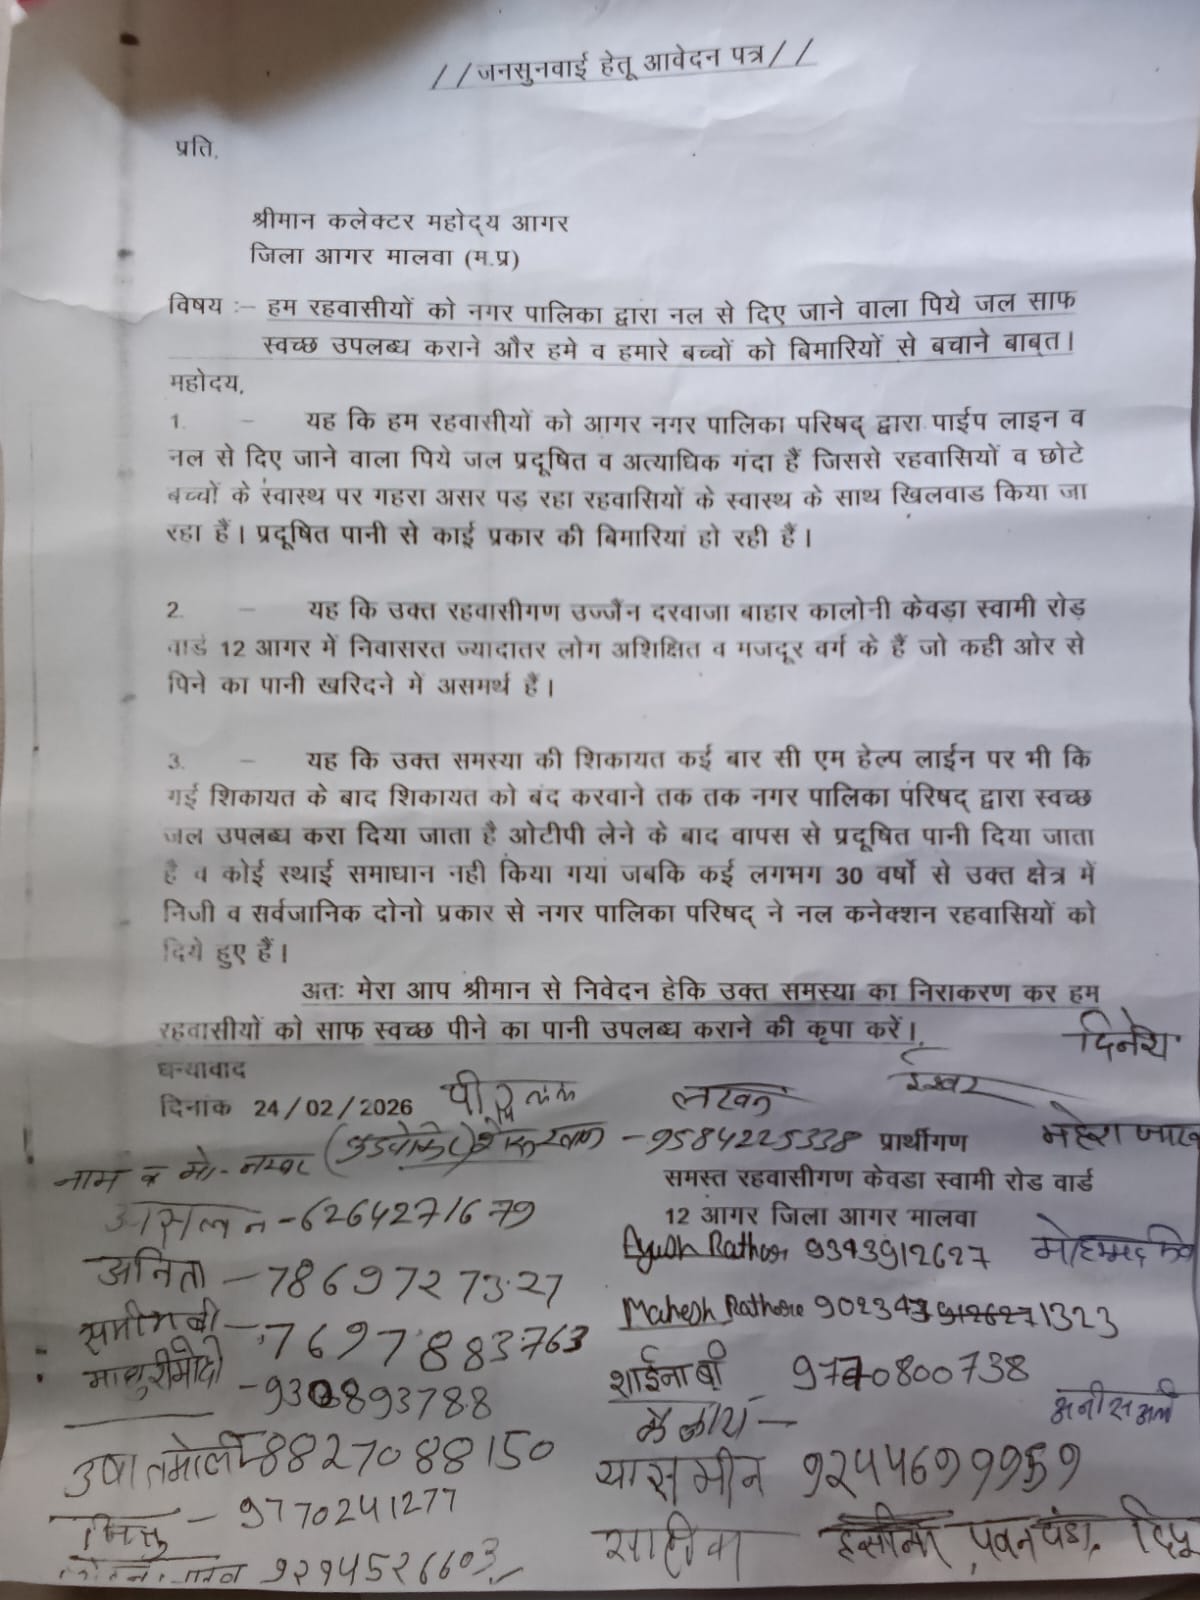 //जनसुनवाई हेतू आवेदन पत्र//
प्रति,
श्रीमान कलेक्टर महोद्य आगर
जिला आगर मालवा (म.प्र)
विषय :– हम रहवासीयों को नगर पालिका द्वारा नल से दिए जाने वाला पिये जल साफ
स्वच्छ उपलब्ध कराने और हमे व हमारे बच्चों को बिमारियों से बचाने बाब्त।
महोदय,
1. – यह कि हम रहवासीयों को आगर नगर पालिका परिषद् द्वारा पाईप लाइन व
नल से दिए जाने वाला पिये जल प्रदूषित व अत्याधिक गंदा हैं जिससे रहवासियों व छोटे
बच्चों के स्वास्थ पर गहरा असर पड़ रहा रहवासियों के स्वास्थ के साथ खिलवाड किया जा
रहा हैं। प्रदूषित पानी से काई प्रकार की बिमारियां हो रही हैं।
2. – यह कि उक्त रहवासीगण उज्जैन दरवाजा बाहार कालोनी केवड़ा स्वामी रोड़
वार्ड 12 आगर में निवासरत ज्यादातर लोग अशिक्षित व मजदूर वर्ग के हैं जो कही ओर से
पिने का पानी खरिदने में असमर्थ हैं।
3. – यह कि उक्त समस्या की शिकायत कई बार सी एम हेल्प लाईन पर भी कि
गई शिकायत के बाद शिकायत को बंद करवाने तक तक नगर पालिका परिषद् द्वारा स्वच्छ
जल उपलब्ध करा दिया जाता है ओटीपी लेने के बाद वापस से प्रदूषित पानी दिया जाता
है व कोई स्थाई समाधान नही किया गया जबकि कई लगभग 30 वर्षो से उक्त क्षेत्र में
निजी व सर्वजानिक दोनो प्रकार से नगर पालिका परिषद् ने नल कनेक्शन रहवासियों को
दिये हुए हैं।
अतः मेरा आप श्रीमान से निवेदन हेकि उक्त समस्या का निराकरण कर हम
रहवासीयों को साफ स्वच्छ पीने का पानी उपलब्ध कराने की कृपा करें।
दिनेश
धन्यावाद
ईश्वर
दिनांक 24/02/2026
लखन
नाम व मो. नम्बर (एडवोकेट) – 9584225338 प्रार्थीगण
समस्त रहवासीगण केवडा स्वामी रोड वार्ड
12 आगर जिला आगर मालवा
असलम – 6264271679
Ayush Rathor 9393912627
मोहम्मद
अनिता – 7869727327
Mahesh Rathore
समीम बी – 7697883763
शाईना बी 9770800738
– 930893788
अनीस
उषा तमोली 8827088150
यासमीन
– 9770241277
पवन पंडा,
9294526603